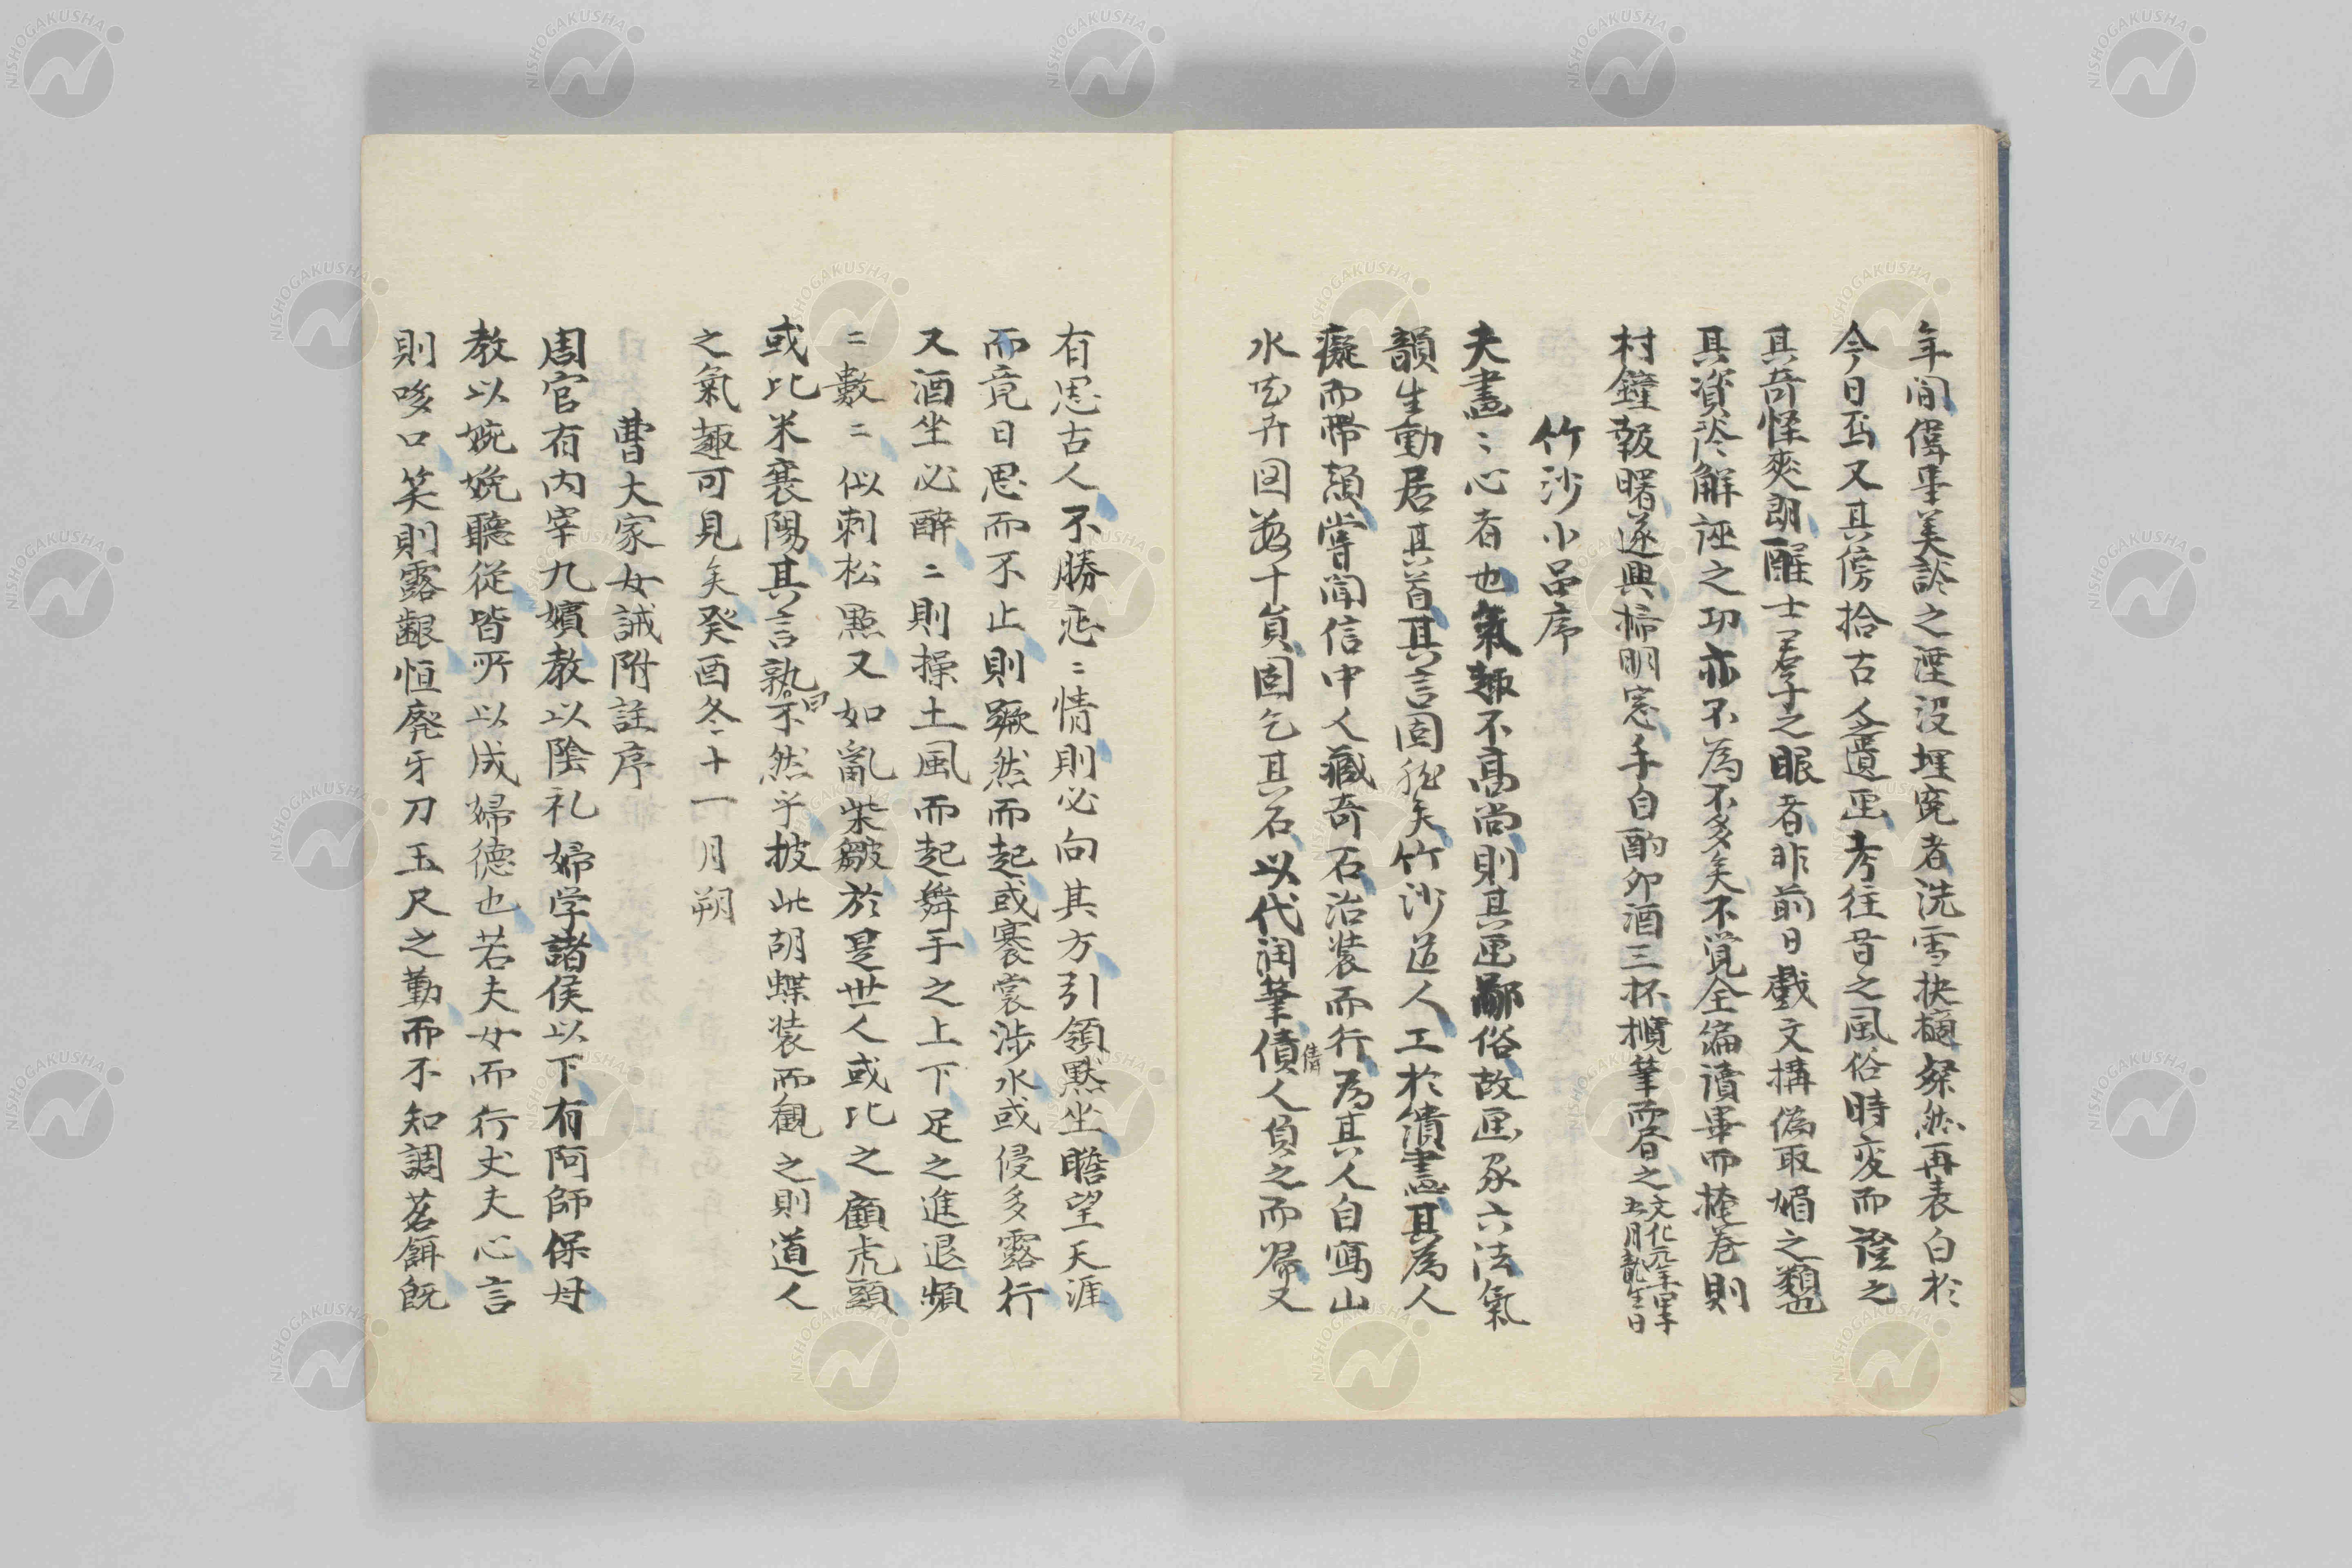 年間偉筆美談之湮没埋寃者洗雪抉擿粲然再表白於
今日焉又其傍拾古人之遺画考往昔之風俗時変而證之
其奇怪爽朗醒士君子之眼者非前日戯文構偽取媚之類也
其資於解誣之功亦不為不多矣不覚全編読畢而掩巻則
村鐘報曙遂興掃明窓手自酌卯酒三杯攬筆而眉之文化元年甲子五月龍生日
竹沙小品序
夫畫〻心者也氣趣不高尚則其画鄙俗故画家六法氣
韻生動居其首其言固𫞕矣竹沙道人工於繢畫其為人
癡而帶顛嘗聞信中人藏奇石治装而行為其人自寫山
水花卉図数千員固乞其石以代润筆債倩人負之而帰又
有思古人不勝恋〻情則必向其方引領黙坐瞻望天涯
而竟日思而不止則蹶然而起或褰裳渉水或侵多露行
又酒坐必醉〻則操土風而起舞手之上下足之進退頻
〻數〻似刺松點又如亂柴皺於是世人或比之顧虎頭
或比米襄陽其言孰曰不然乎披此胡蝶装而観之則道人
之氣趣可見矣癸酉冬十一月朔
曹大家女誡附註序
周官有内宰九嬪教以陰礼婦学諸侯以下有阿師保母
教以婉娩聽從皆所以成婦德也若夫女而行丈夫心言
則哆口笑則露齦恒廃牙刀玉尺之勤而不知調茗餌既